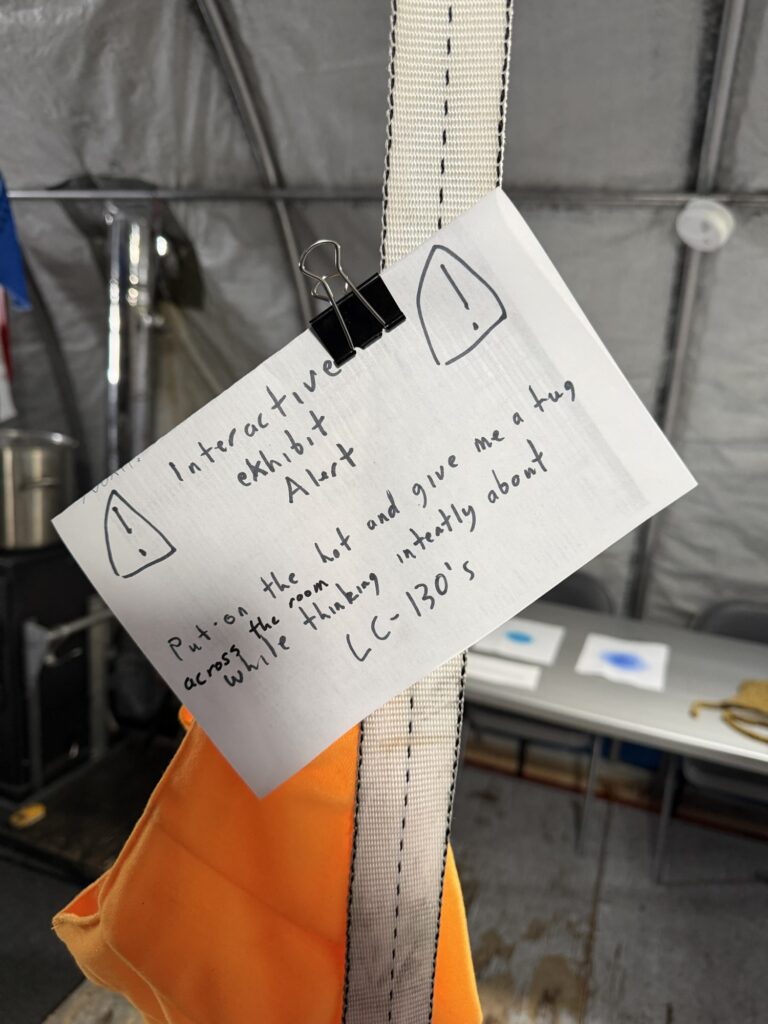 Interactive
exhibit
Alert
!
!
Put-on the hot and give me a tug
across the room
while thinking intently about
LC-130's